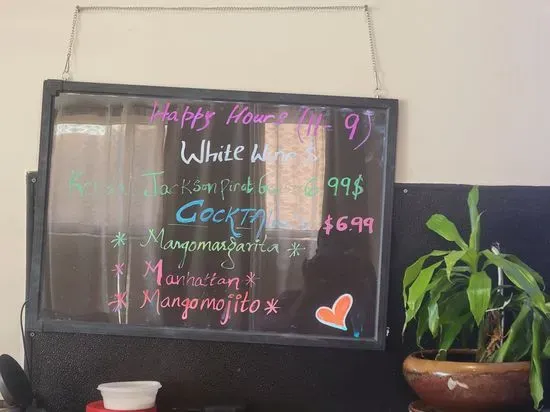 Happy Hours (11 - 9)
White Wine's
Jackson pinot 6.99$
Cocktails $6.99
* Mangomargarita *
* Manhattan *
* Mangomojito *